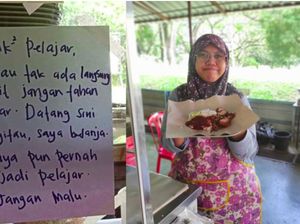 k² Pelajar,
au tak ada langsung
il jangan tahan
ar. Datang sini
gitau, saya belanja.
ya pun pernah
jadi pelajar.
Jangan malu.